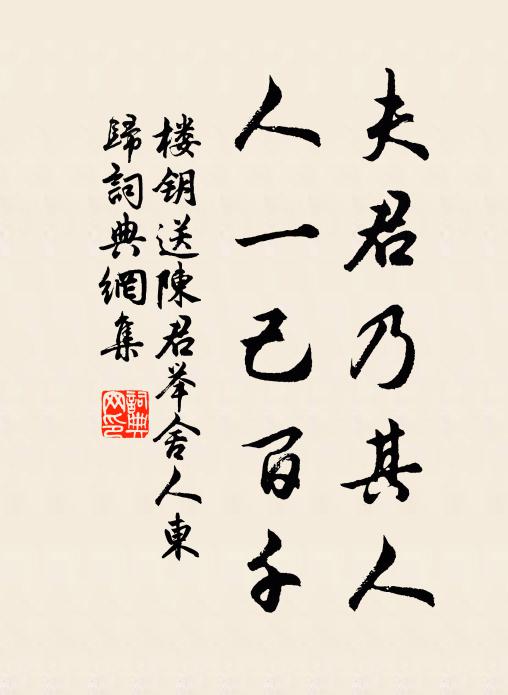 夫君乃其人
人一己百千
楼钥送陳君举舍人東
歸詞典網集
詞典
网印